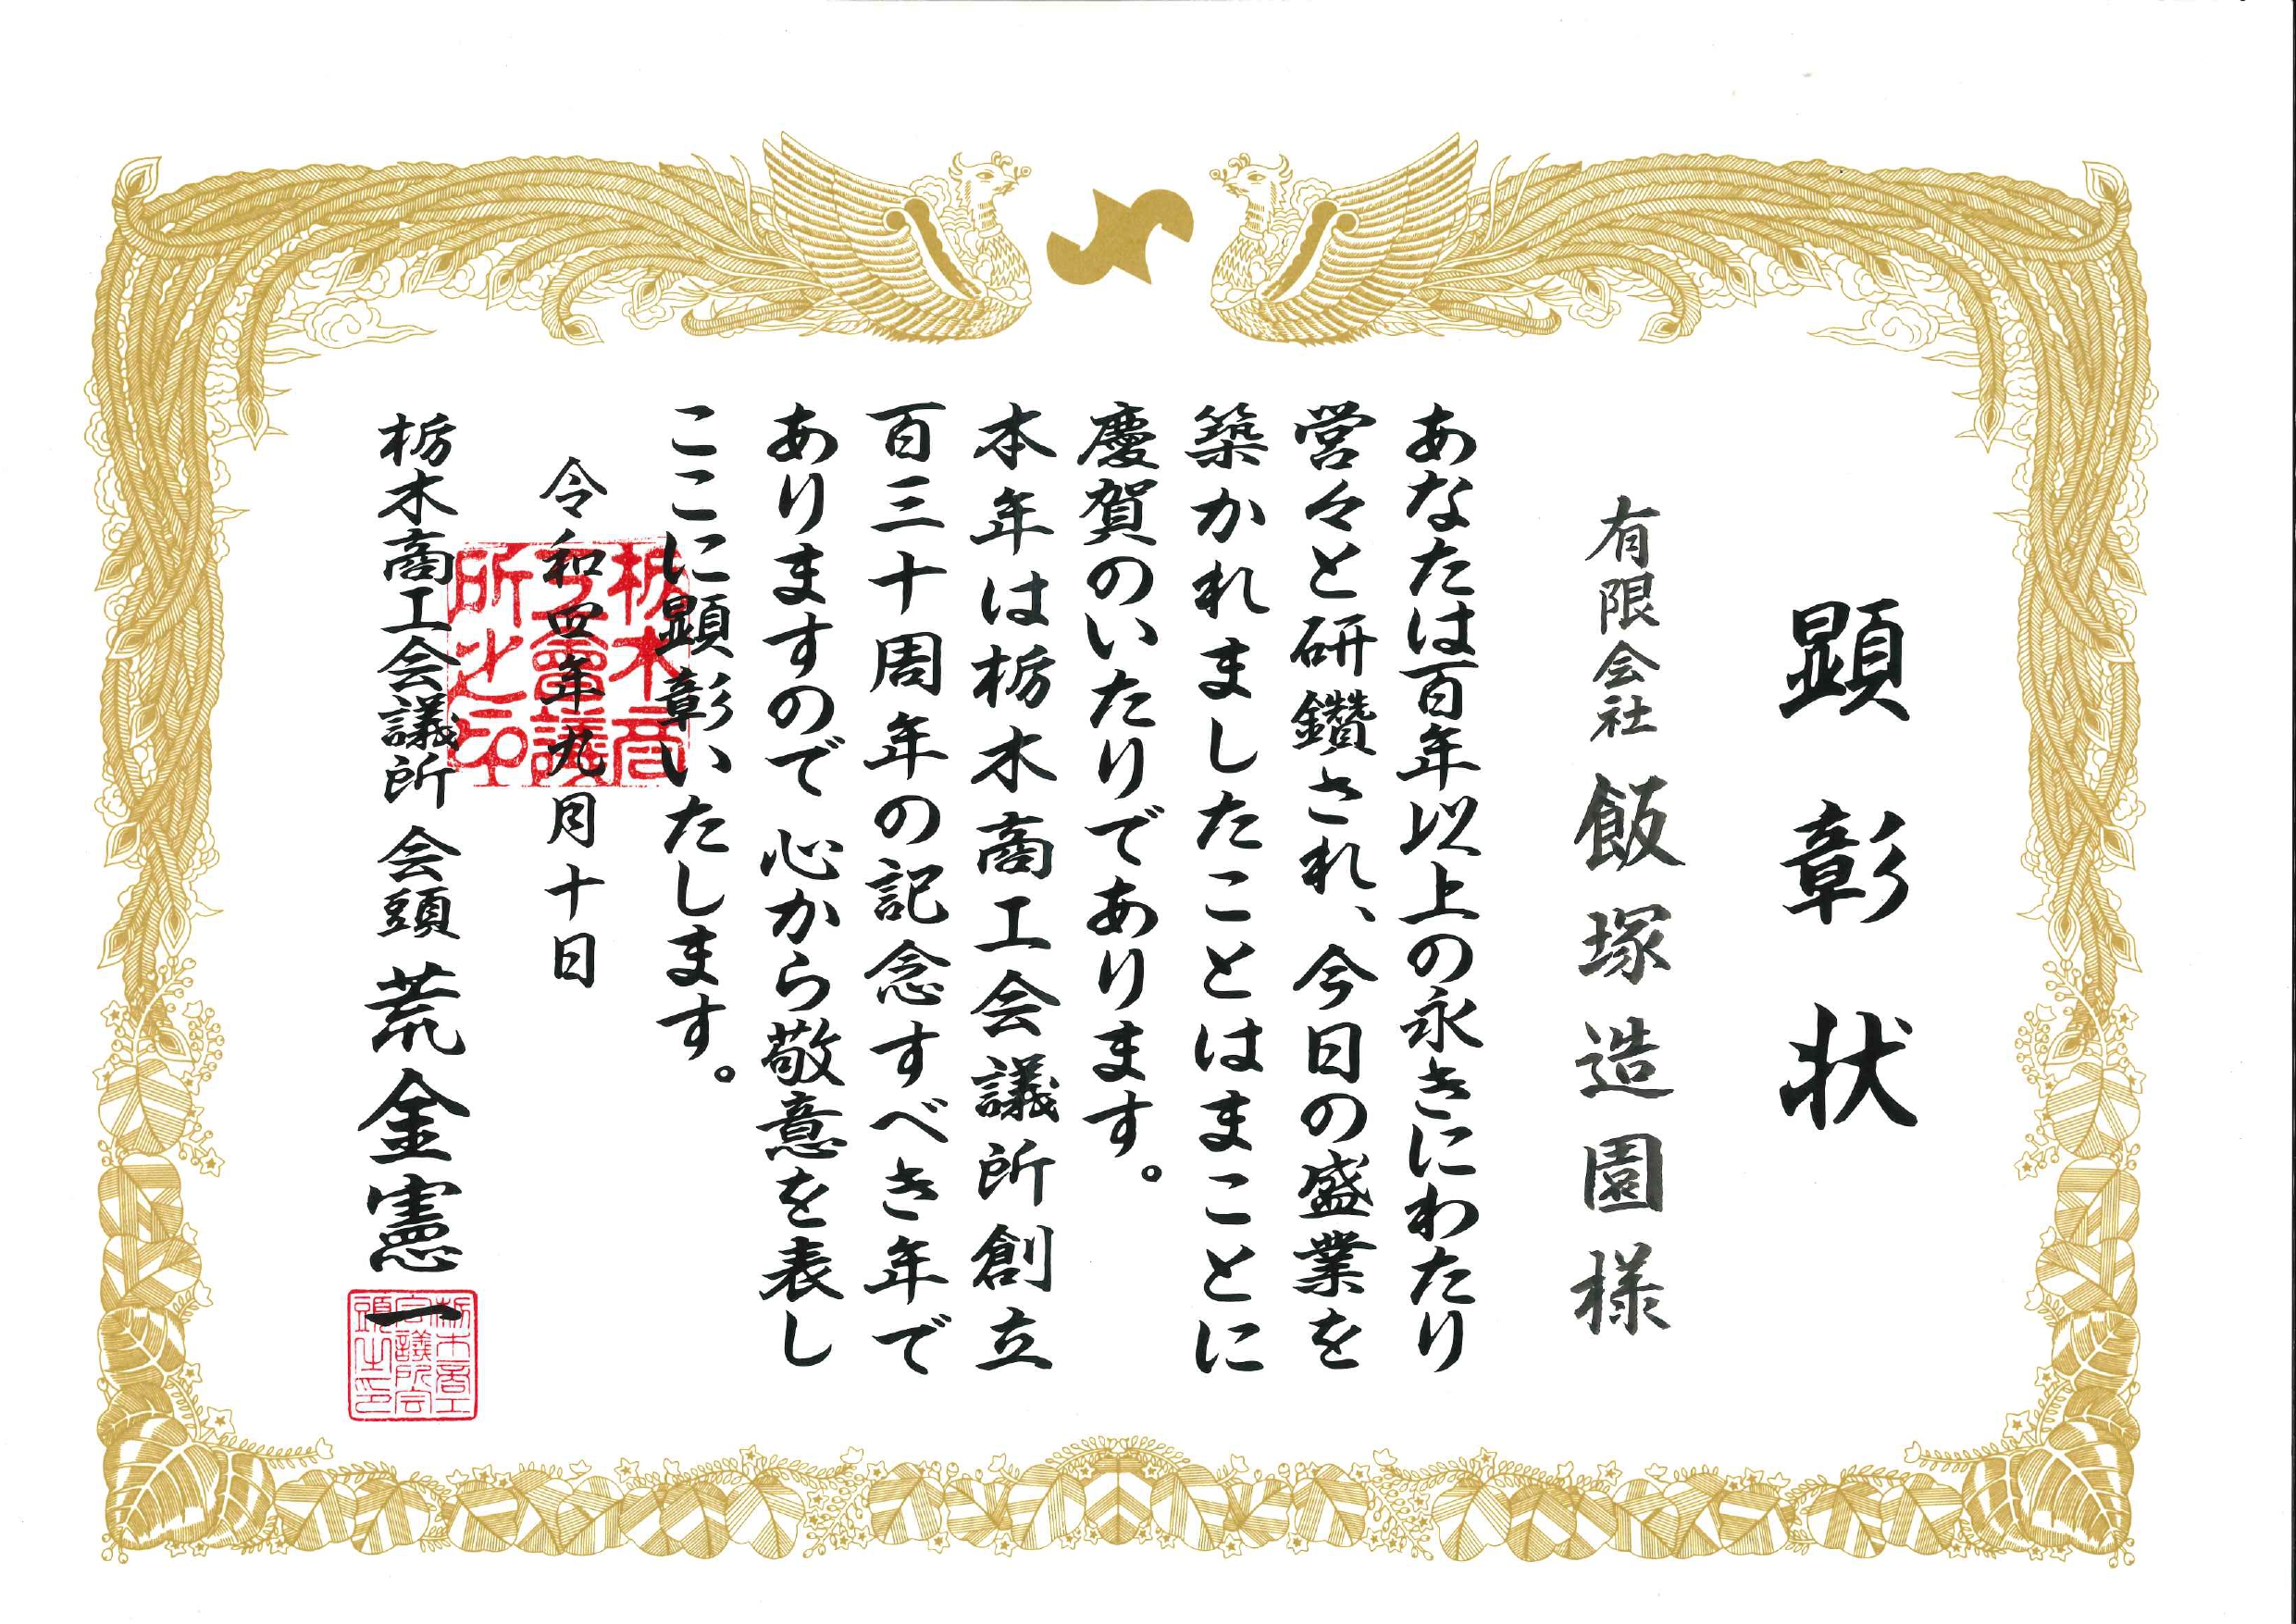 顕彰状
有限会社 飯塚造園様
あなたは百年以上の永きにわたり
営々と研鑽され、今日の盛業を
築かれましたことはまことに
慶賀のいたりであります。
本年は栃木商工会議所創立
百三十周年の記念すべき年で
ありますので 心から敬意を表し
ここに顕彰いたします。
令和四年九月十日
栃木商工会議所 会頭 荒金憲一
栃木商
工會議
所之印
栃木商工
会議所会
頭之印